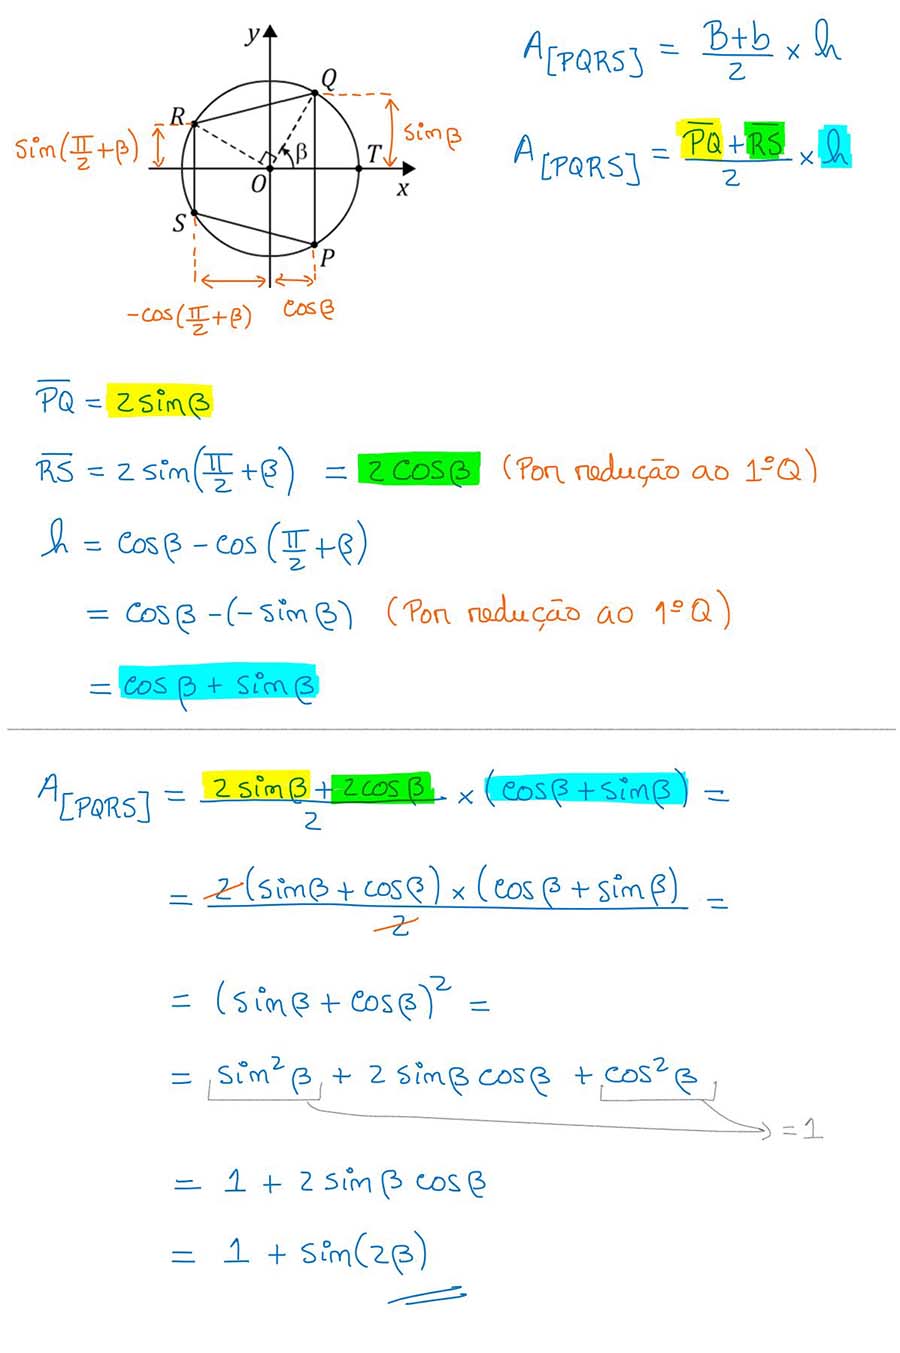 y
Q
R
β
T
O
x
S
P
sin(π/2+β)
sinβ
-cos(π/2+β)
cosβ
A[PQRS] = (B+b)/2 × h
A[PQRS] = (P̅Q̅+R̅S̅)/2 × h
P̅Q̅ = 2sinβ
R̅S̅ = 2sin(π/2+β) = 2cosβ (Por redução ao 1ºQ)
h = cosβ-cos(π/2+β)
= cosβ-(-sinβ) (Por redução ao 1ºQ)
= cosβ+sinβ
A[PQRS] = (2sinβ+2cosβ)/2 × (cosβ+sinβ) =
= 2(sinβ+cosβ)×(cosβ+sinβ)/2 =
= (sinβ+cosβ)² =
= sin²β + 2sinβcosβ + cos²β
=1
= 1 + 2sinβcosβ
= 1 + sin(2β)